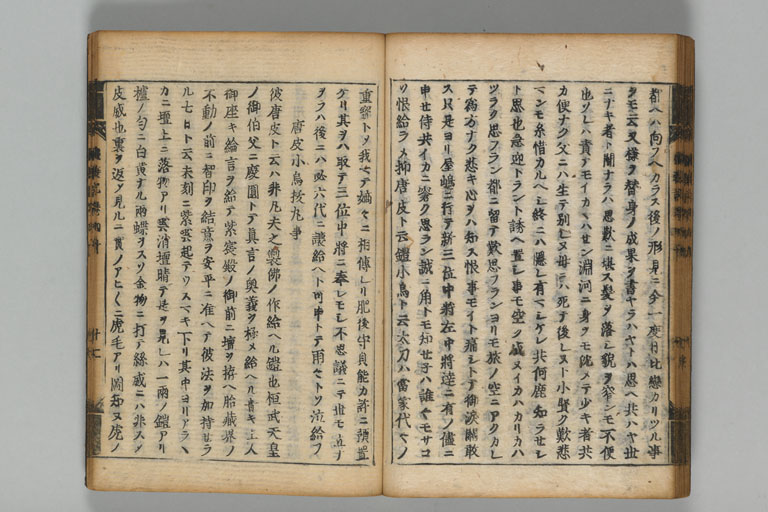 都ヘハ向フヘカラス後ノ形見ニ今一度丹比戀カリツル事
タモ云又様ヲ替身ノ成果ヲ書ヤラハヤト思ヘ共ハヤ世
ニナキ者ト聞ナラハ思歎ニ堪ス髪ヲ落シ貌ヲ窄ンモ不便
也ソレハ責テモイカヽハセン淵河ニ身ヲモ沈メテ少キ者共
カ便ナク父ニハ生テ別レヌ母ニハ死テ後レスト小賢ク歎悲
ヘンモ糸惜カルヘシ終ニハ隠レ有ヘシケレ共何鹿知ラセシ
ト思也急迎トラント誘ヘ置シ事モ空ク成メイカハカリカハ
ツラク思フラン都ニ留テ歎思フランヨリモ旅ノ空ニアクカレ
テ為方ナク悲キ心ヲハ知ス恨事モイト痛シトテ御涙關敢
ス只是ヨリ屋嶋ニ行テ新三位中將左中將達ニ有ノ儘ニ
申セ侍共イカニ窄ク思ラン誠ニ角トモ知セ子ハ誰々モサコ
ソ恨給ラメ抑唐皮ト云鎧小烏ト云太刀ハ當家代々ノ
重寳トメ我マテ嫡々ニ相傳レリ肥後守貞能カ許ニ預置
ケリ其ヲハ取テ三位中將ニ奉レモシ不思議ニテ世モ直ナ
ヲラハ後ニハ必六代ニ讓給ヘト可申トテ雨々トソ泣給フ
唐皮小烏抜丸事
彼唐皮ト云ハ非凡夫之製佛ノ作給ヘル鎧也桓武天皇
ノ御伯父ニ慶圓トテ真言ノ奥義ヲ極メ給ヘル貴キ上人
御座キ綸言ヲ給テ紫宸殿ノ御前ニ壇ヲ拵ヘ胎藏界ノ
不動ノ前ニ智印ヲ結意ヲ安平ニ准ヘテ彼法ヲ加持セラ
ル七日ト云未刻ニ紫雲起テウスマキ下リ其中ヨリアラヽ
カニ壇上ニ落物アリ雲消壇晴テ是ヲ見レハ一両ノ鎧アリ
櫨ノ匂ニ白黄ナル両蝶ヲスソ金物ニ打テ絲威ニハ非スメ
皮威也裏ヲ返メ見ルニ實ノアヒ々々ニ虎毛アリ圖知ヌ虎ノ